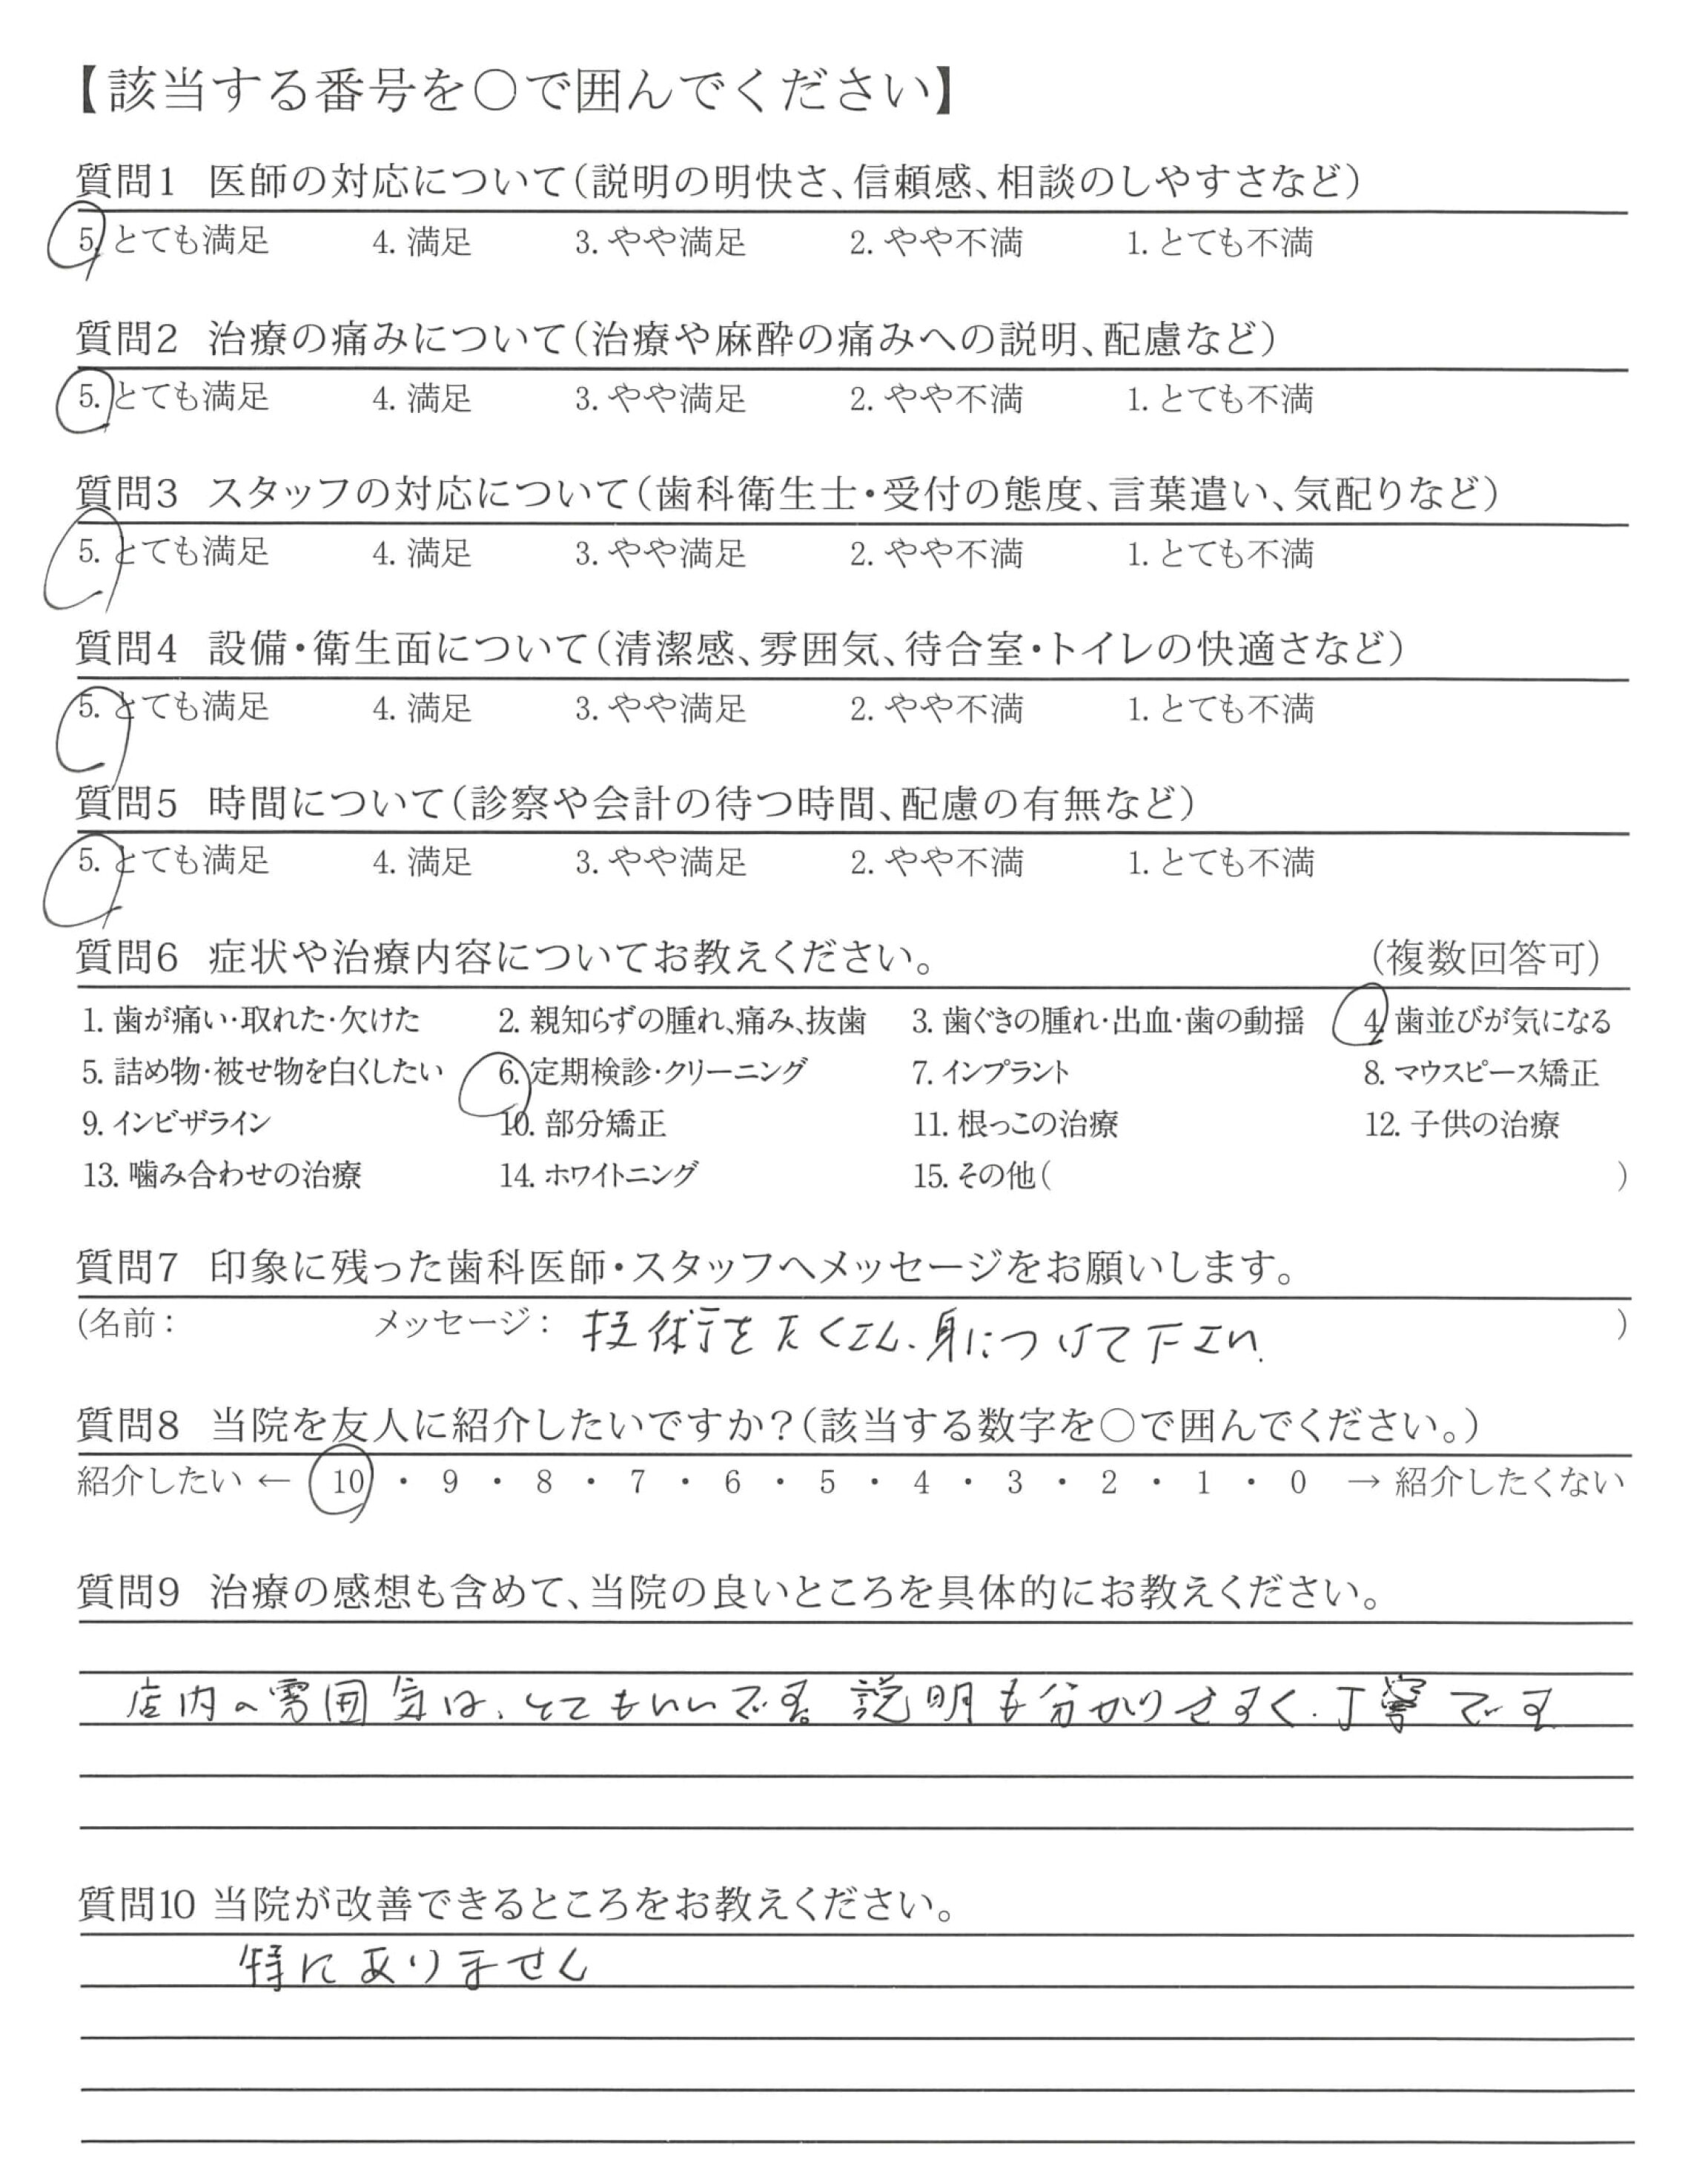 【該当する番号を○で囲んでください】
質問1 医師の対応について(説明の明快さ、信頼感、相談のしやすさなど)
5. とても満足 4. 満足 3. やや満足 2. やや不満 1. とても不満
質問2 治療の痛みについて(治療や麻酔の痛みへの説明、配慮など)
5. とても満足 4. 満足 3. やや満足 2. やや不満 1. とても不満
質問3 スタッフの対応について(歯科衛生士・受付の態度、言葉遣い、気配りなど)
5. とても満足 4. 満足 3. やや満足 2. やや不満 1. とても不満
質問4 設備・衛生面について(清潔感、雰囲気、待合室・トイレの快適さなど)
5. とても満足 4. 満足 3. やや満足 2. やや不満 1. とても不満
質問5 時間について(診察や会計の待つ時間、配慮の有無など)
5. とても満足 4. 満足 3. やや満足 2. やや不満 1. とても不満
質問6 症状や治療内容についてお教えください。 (複数回答可)
1. 歯が痛い・取れた・欠けた 2. 親知らずの腫れ、痛み、抜歯 3. 歯ぐきの腫れ・出血・歯の動揺 4. 歯並びが気になる
5. 詰め物・被せ物を白くしたい 6. 定期検診・クリーニング 7. インプラント 8. マウスピース矯正
9. インビザライン 10. 部分矯正 11. 根っこの治療 12. 子供の治療
13. 噛み合わせの治療 14. ホワイトニング 15. その他( )
質問7 印象に残った歯科医師・スタッフへメッセージをお願いします。
(名前: メッセージ: 技術をたくさん、身につけて下さい。 )
質問8 当院を友人に紹介したいですか?(該当する数字を○で囲んでください。)
紹介したい ← 10 ・ 9 ・ 8 ・ 7 ・ 6 ・ 5 ・ 4 ・ 3 ・ 2 ・ 1 ・ 0 → 紹介したくない
質問9 治療の感想も含めて、当院の良いところを具体的にお教えください。
店内の雰囲気は、とてもいいです。説明も分かりやすく、丁寧です
質問10 当院が改善できるところをお教えください。
特にありません